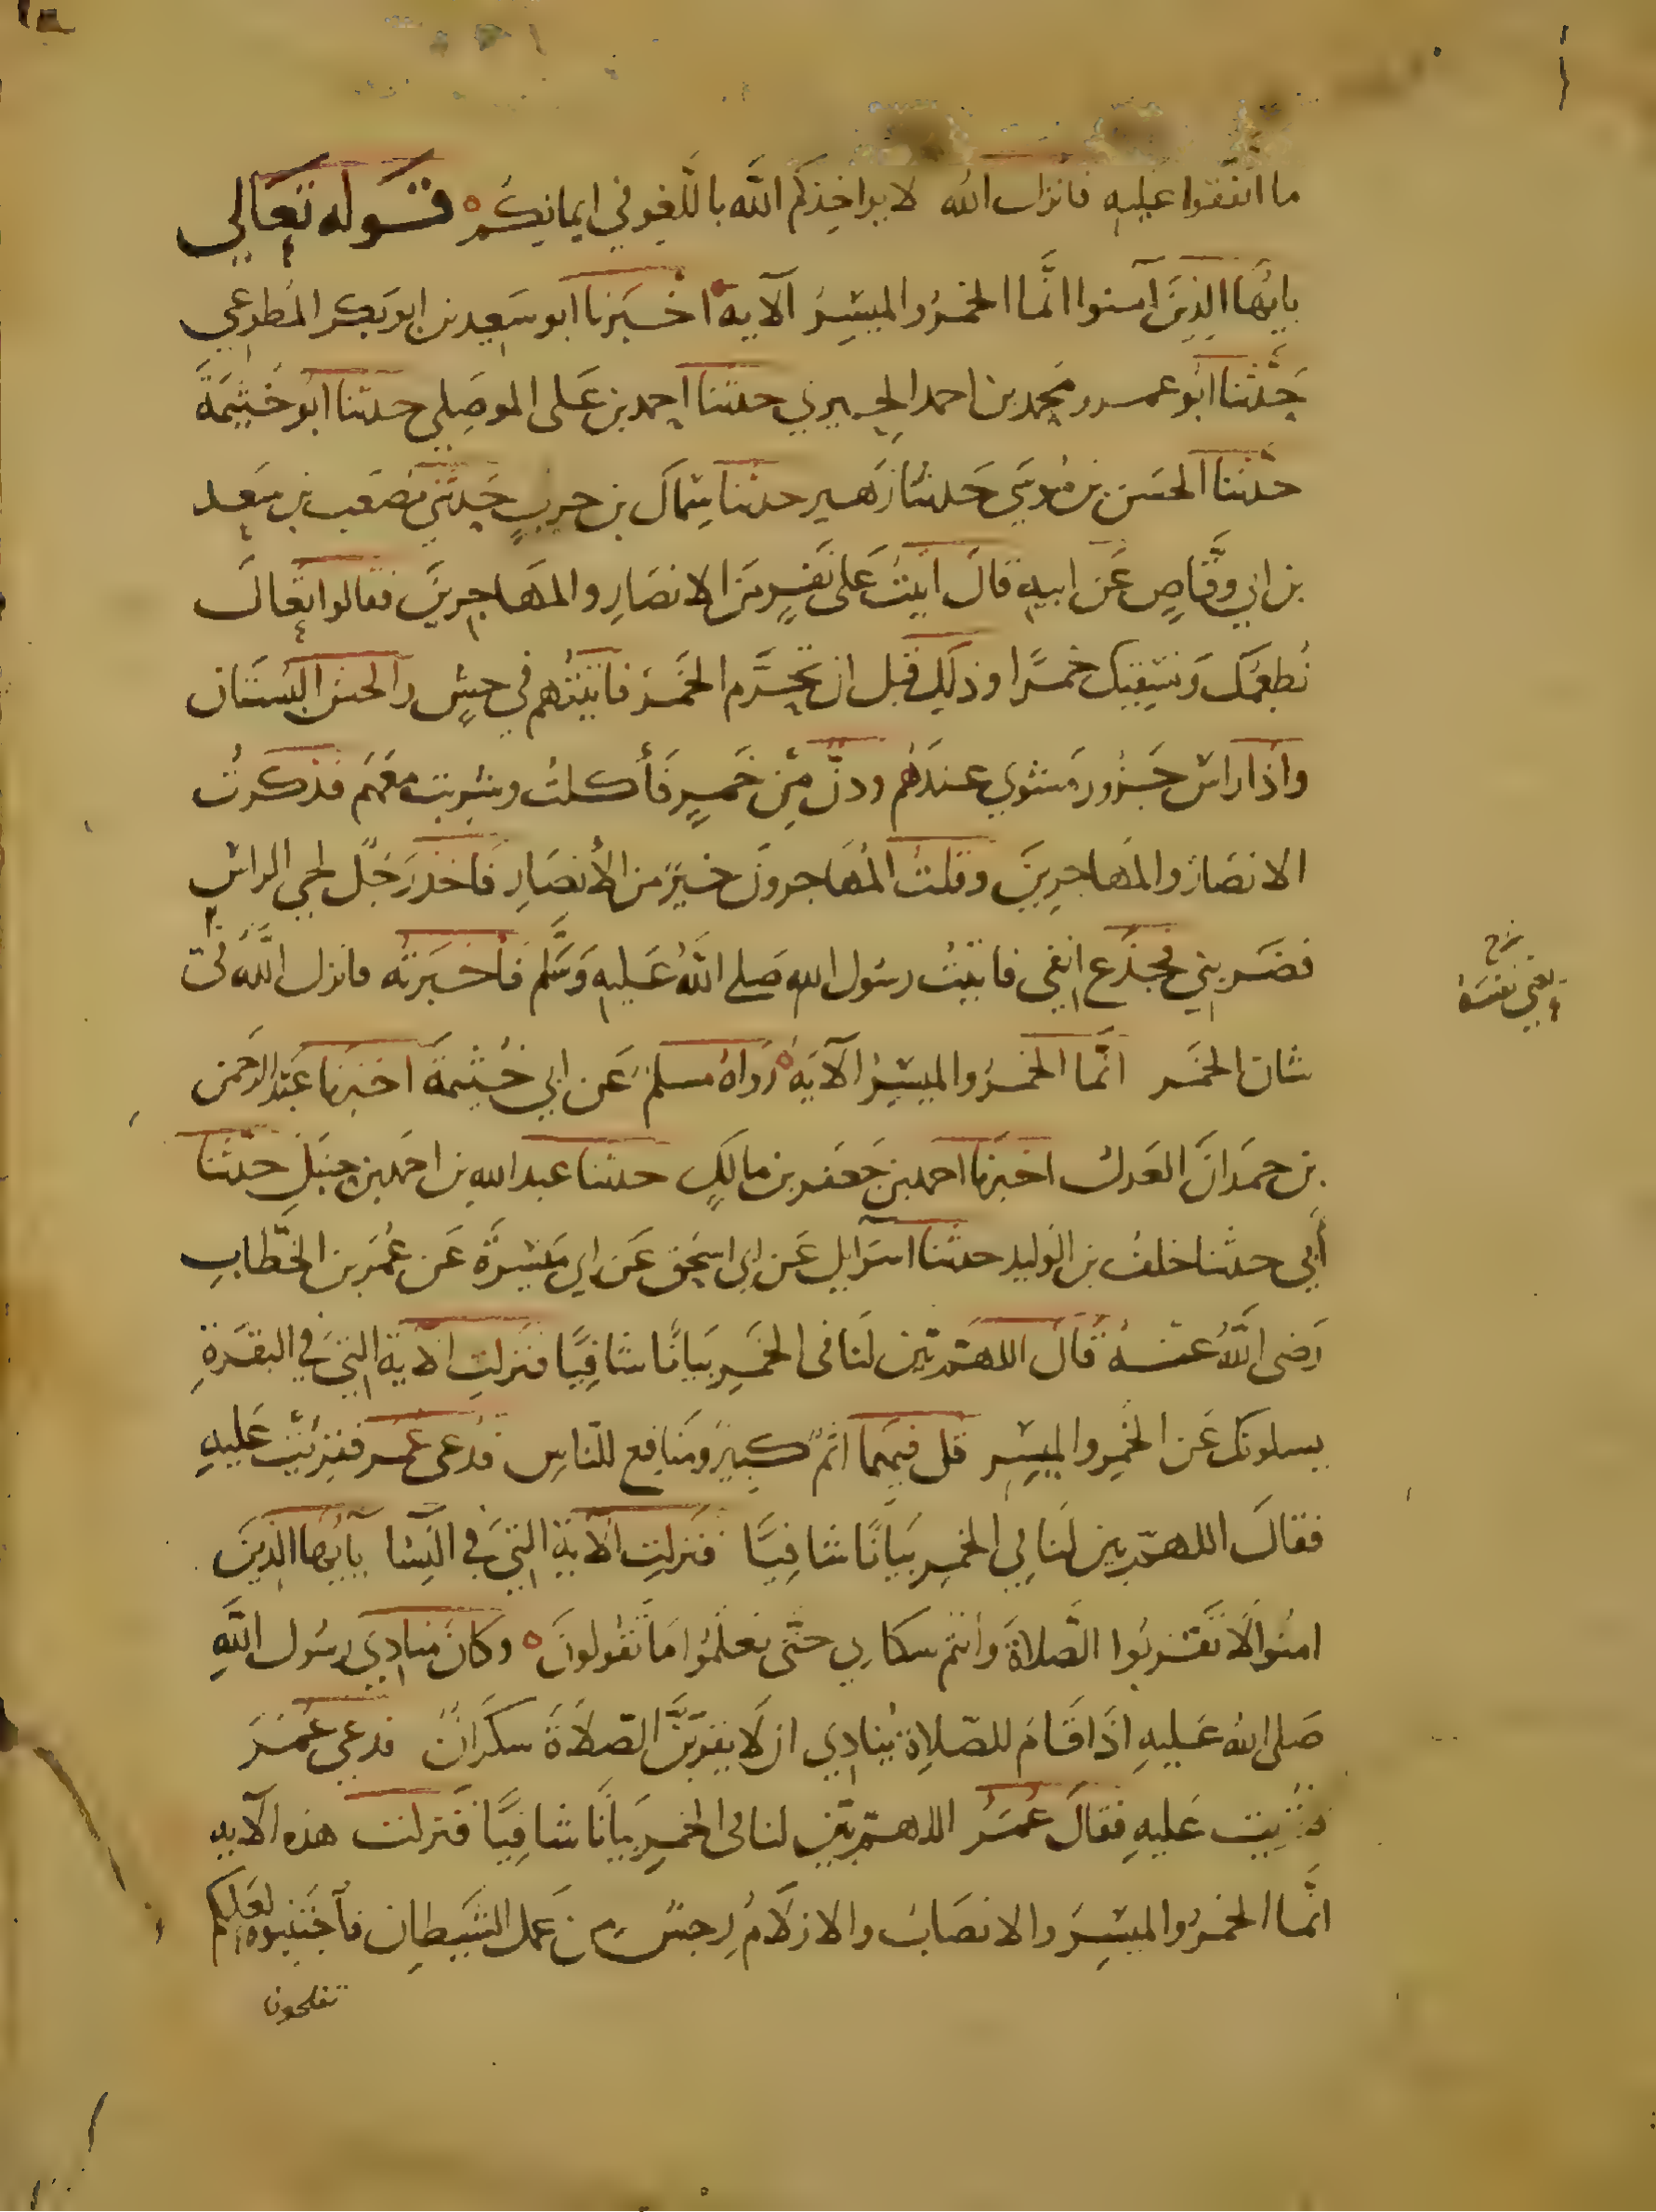 ما اتفقوا عليه فانزل الله لا يواخذكم الله باللغو في ايمانكم قوله تعالى
يايها الذين آمنوا انما الخمر والميسر الآية اخبرنا ابو سعيد بن ابو بكر المطوعي
حدثنا ابو عمرو محمد بن احمد الحيري حدثنا احمد بن على الموصلي حدثنا ابو خيثمة
حدثنا الحسن بن موسى حدثنا زهير حدثنا سماك بن حرب حدثني مصعب بن سعد
بن ابي وقاص عن ابيه قال اتيت على نفر من الانصار والمهاجرين فقالوا تعال
نطعمك ونسقيك خمرا وذلك قبل ان تحرم الخمر فاتيتهم في حش والحش البستان
واذا راس جزور مشوي عندهم ودن من خمر فأكلت وشربت معهم فذكرت
الانصار والمهاجرين وقلت المهاجرون خير من الأنصار فاخذ رجل لحي الراس
فضربني فجذع انفي فاتيت رسول الله صلى الله عليه وسلم فأخبرته فانزل الله في
شان الخمر انما الخمر والميسر الآية رواه مسلم عن ابي خيثمة اخبرنا عبد الرحمن
بن حمدان العدل اخبرنا احمد بن جعفر بن مالك حدثنا عبد الله بن احمد بن حنبل حدثنا
أبي حدثنا خلف بن الوليد حدثنا اسرايل عن ابي اسحق عن ابي ميسرة عن عمر بن الخطاب
رضى الله عنه قال اللهم بين لنا فى الخمر بيانا شافيا فنزلت الآية التي في البقرة
يسلونك عن الخمر والميسر قل فيهما اثم كبير ومنافع للناس فدعى عمر فقرئت عليه
فقال اللهم بين لنا في الخمر بيانا شافيا فنزلت الآية التي في النسا يآيها الذين
امنوا لا تقربوا الصلاة وانتم سكارى حتى تعلموا ما تقولون وكان منادي رسول الله
صلى الله عليه اذا قام للصلاة ينادي ان لا يقربن الصلاة سكران فدعي عمر
فقريت عليه فقال عمر اللهم بين لنا فى الخمر بيانا شافيا فنزلت هذه الآية
انما الخمر والميسر والانصاب والازلام رجس من عمل الشيطان فاجتنبوه لعلكم
تفلحون
يعني نفسه